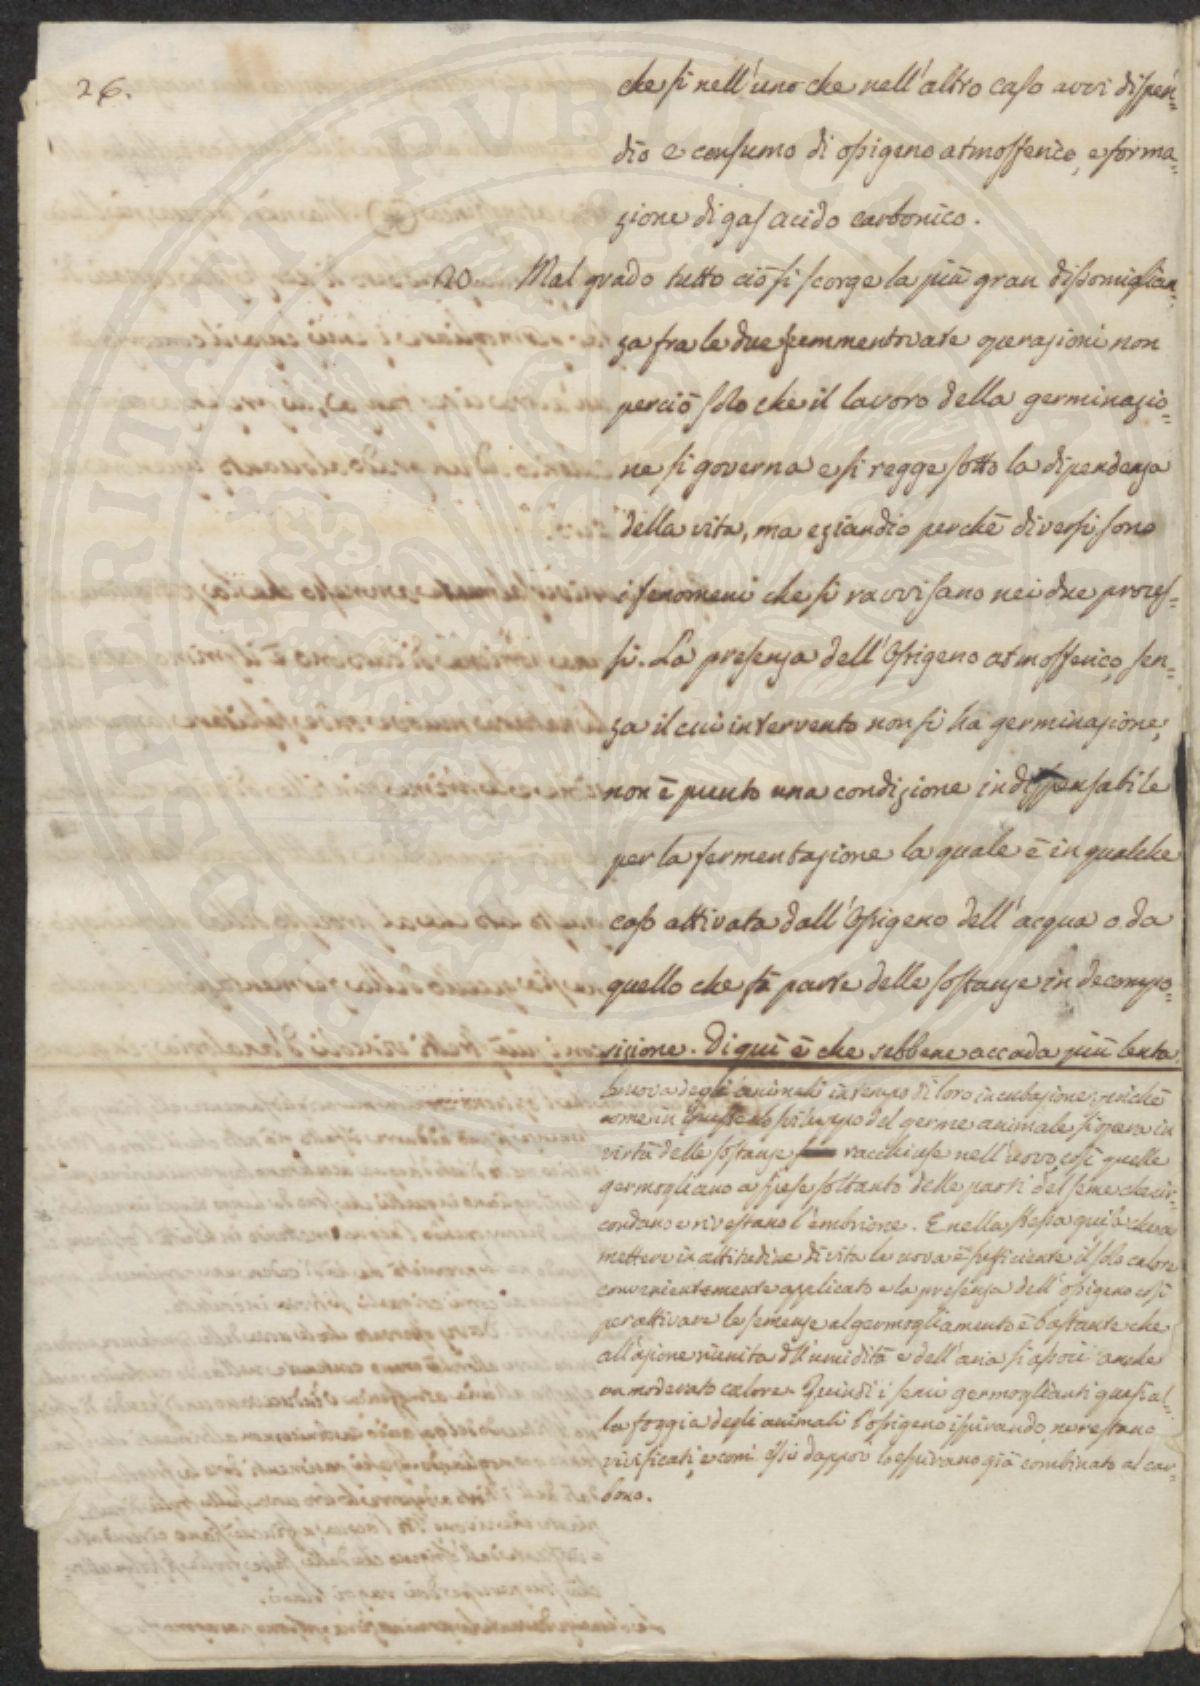 26.
che si nell'uno che nell'altro caso avvi dispen=
dio e consumo di ossigeno atmosferico, e forma=
zione di gas acido carbonico.
20. Mal grado tutto ciò si scorge la più gran dissomiglian=
za fra le due summentovate operazioni non
perciò solo che il lavoro della germinazio=
ne si governa e si regge sotto la dipendenza
della vita, ma eziandio perchè diversi sono
i fenomeni che si ravvisano nei due proces=
si. La presenza dell'Ossigeno atmosferico, sen=
za il cui intervento non si ha germinazione,
non è punto una condizione indispensabile
per la fermentazione la quale è in qualche
caso attivata dall'Ossigeno dell'acqua o da
quello che fà parte delle sostanze in decompo=
sizione. Di quì è che sebbene accada più lenta
le uova degli animali in tempo di loro incubazione; poichè
come in queste lo sviluppo del germe animale si opera in
virtù delle sostanze racchiuse nell'uovo, così quelle
germogliano a spese soltanto delle parti del seme che cir=
condano e rivestano l'embrione. E nella stessa guisa che a
mettere in attitudine di vita le uova è sufficiente il solo calore
convenientemente applicato e la presenza dell'ossigeno così
per attivare le semenze al germogliamento è bastante che
all'azione riunita dell'umidità e dell'aria si associ anche
un moderato calore. Quindi i semi germoglianti quasi al=
la foggia degli animali l'ossigeno ispirando, ne restano
vivificati, e com' essi dappoi lo espirano già combinato al car=
bono.